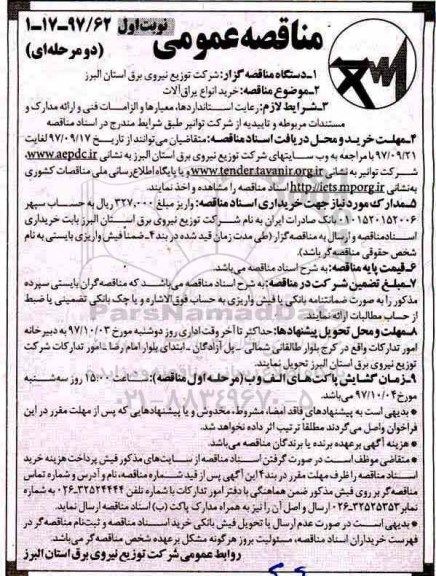 مناقصه عمومی نوبت اول ۱-۱۷-۹۷/۶۲
(دو مرحله‌ای)
۱-دستگاه مناقصه گزار: شرکت توزیع نیروی برق استان البرز
۲-موضوع مناقصه: خرید انواع یراق آلات
۳-شرایط لازم: رعایت استانداردها، معیارها و الزامات فنی و ارائه مدارک و
مستندات مربوطه و تاییدیه از شرکت توانیر طبق شرایط مندرج در اسناد مناقصه
۴-مهلت خرید و محل دریافت اسناد مناقصه: متقاضیان می‌توانند از تاریخ ۹۷/۰۹/۱۷ لغایت
۹۷/۰۹/۲۱ با مراجعه به وب سایتهای شرکت توزیع نیروی برق استان البرز به نشانی www.aepdc.ir،
شرکت توانیر به نشانی www.tender.tavanir.org.ir و یا پایگاه اطلاع رسانی ملی مناقصات کشوری
به نشانی http://iets.mporg.ir اسناد مناقصه را مشاهده و اخذ نمایند.
۵-مدارک مورد نیاز جهت خریداری اسناد مناقصه: واریز مبلغ ۳۲۷,۰۰۰ ریال به حساب سپهر
۰۱۰۱۵۲۰۱۵۲۰۰۶ بانک صادرات ایران به نام شرکت توزیع نیروی برق استان البرز بابت خریداری
اسناد مناقصه و ارسال به مناقصه گزار (طی مدت زمان قید شده در بند ۴-ضمناً فیش واریزی بایستی به نام
شخص حقوقی مناقصه گر باشد).
۶-قیمت پایه مناقصه: به شرح اسناد مناقصه می‌باشد.
۷-مبلغ تضمین شرکت در مناقصه: به شرح اسناد مناقصه می‌باشد که مناقصه گران بایستی سپرده
مذکور را به صورت ضمانتنامه بانکی یا فیش واریزی به حساب فوق الاشاره و یا چک بانکی تضمینی یا ضبط
از حساب مطالبات ارائه نمایند.
۸-مهلت و محل تحویل پیشنهادها: حداکثر تا آخر وقت اداری روز دوشنبه مورخ ۹۷/۱۰/۰۳ به دبیرخانه
امور تدارکات واقع در کرج بلوار طالقانی شمالی - پل آزادگان - ابتدای بلوار امام رضا - امور تدارکات شرکت
توزیع نیروی برق استان البرز تحویل نمایند.
۹-زمان گشایش پاکت های الف و ب (مرحله اول مناقصه): ساعت ۱۵:۰۰ روز سه شنبه
مورخ ۹۷/۱۰/۰۴ می‌باشد.
• بدیهی است به پیشنهادهای فاقد امضا، مشروط، مخدوش و یا پیشنهادهایی که پس از مهلت مقرر در این
فراخوان واصل می‌گردند مطلقا ترتیب اثر داده نخواهد شد.
• هزینه آگهی برعهده برنده یا برندگان مناقصه می‌باشد.
• متقاضی موظف است در صورت گرفتن اسناد مناقصه از سایت‌های مذکور فیش پرداخت هزینه خرید
اسناد مناقصه را ظرف مهلت مقرر در بند ۴ این آگهی پس از قید شماره مناقصه، نام و آدرس و شماره تماس
مناقصه گر بر روی فیش مذکور ضمن هماهنگی با دفتر امور تدارکات با شماره تلفن ۳۲۵۲۴۴۴۴-۰۲۶ به شماره
نمابر ۳۲۵۲۵۳۵۲-۰۲۶ ارسال و اصل آن را نیز به همراه مدارک پاکت (ب) اسناد مناقصه ارسال نماید.
• بدیهی است در صورت عدم ارسال یا تحویل فیش بانکی خرید اسناد مناقصه و ثبت نام مناقصه گر در
فهرست خریداران اسناد مناقصه، مسئولیت بروز هرگونه مشکل برعهده شخص مناقصه گر می‌باشد.
روابط عمومی شرکت توزیع نیروی برق استان البرز
ParsNamadData
۰۲۱-۸۸۳۴۹۶۷۰-۵